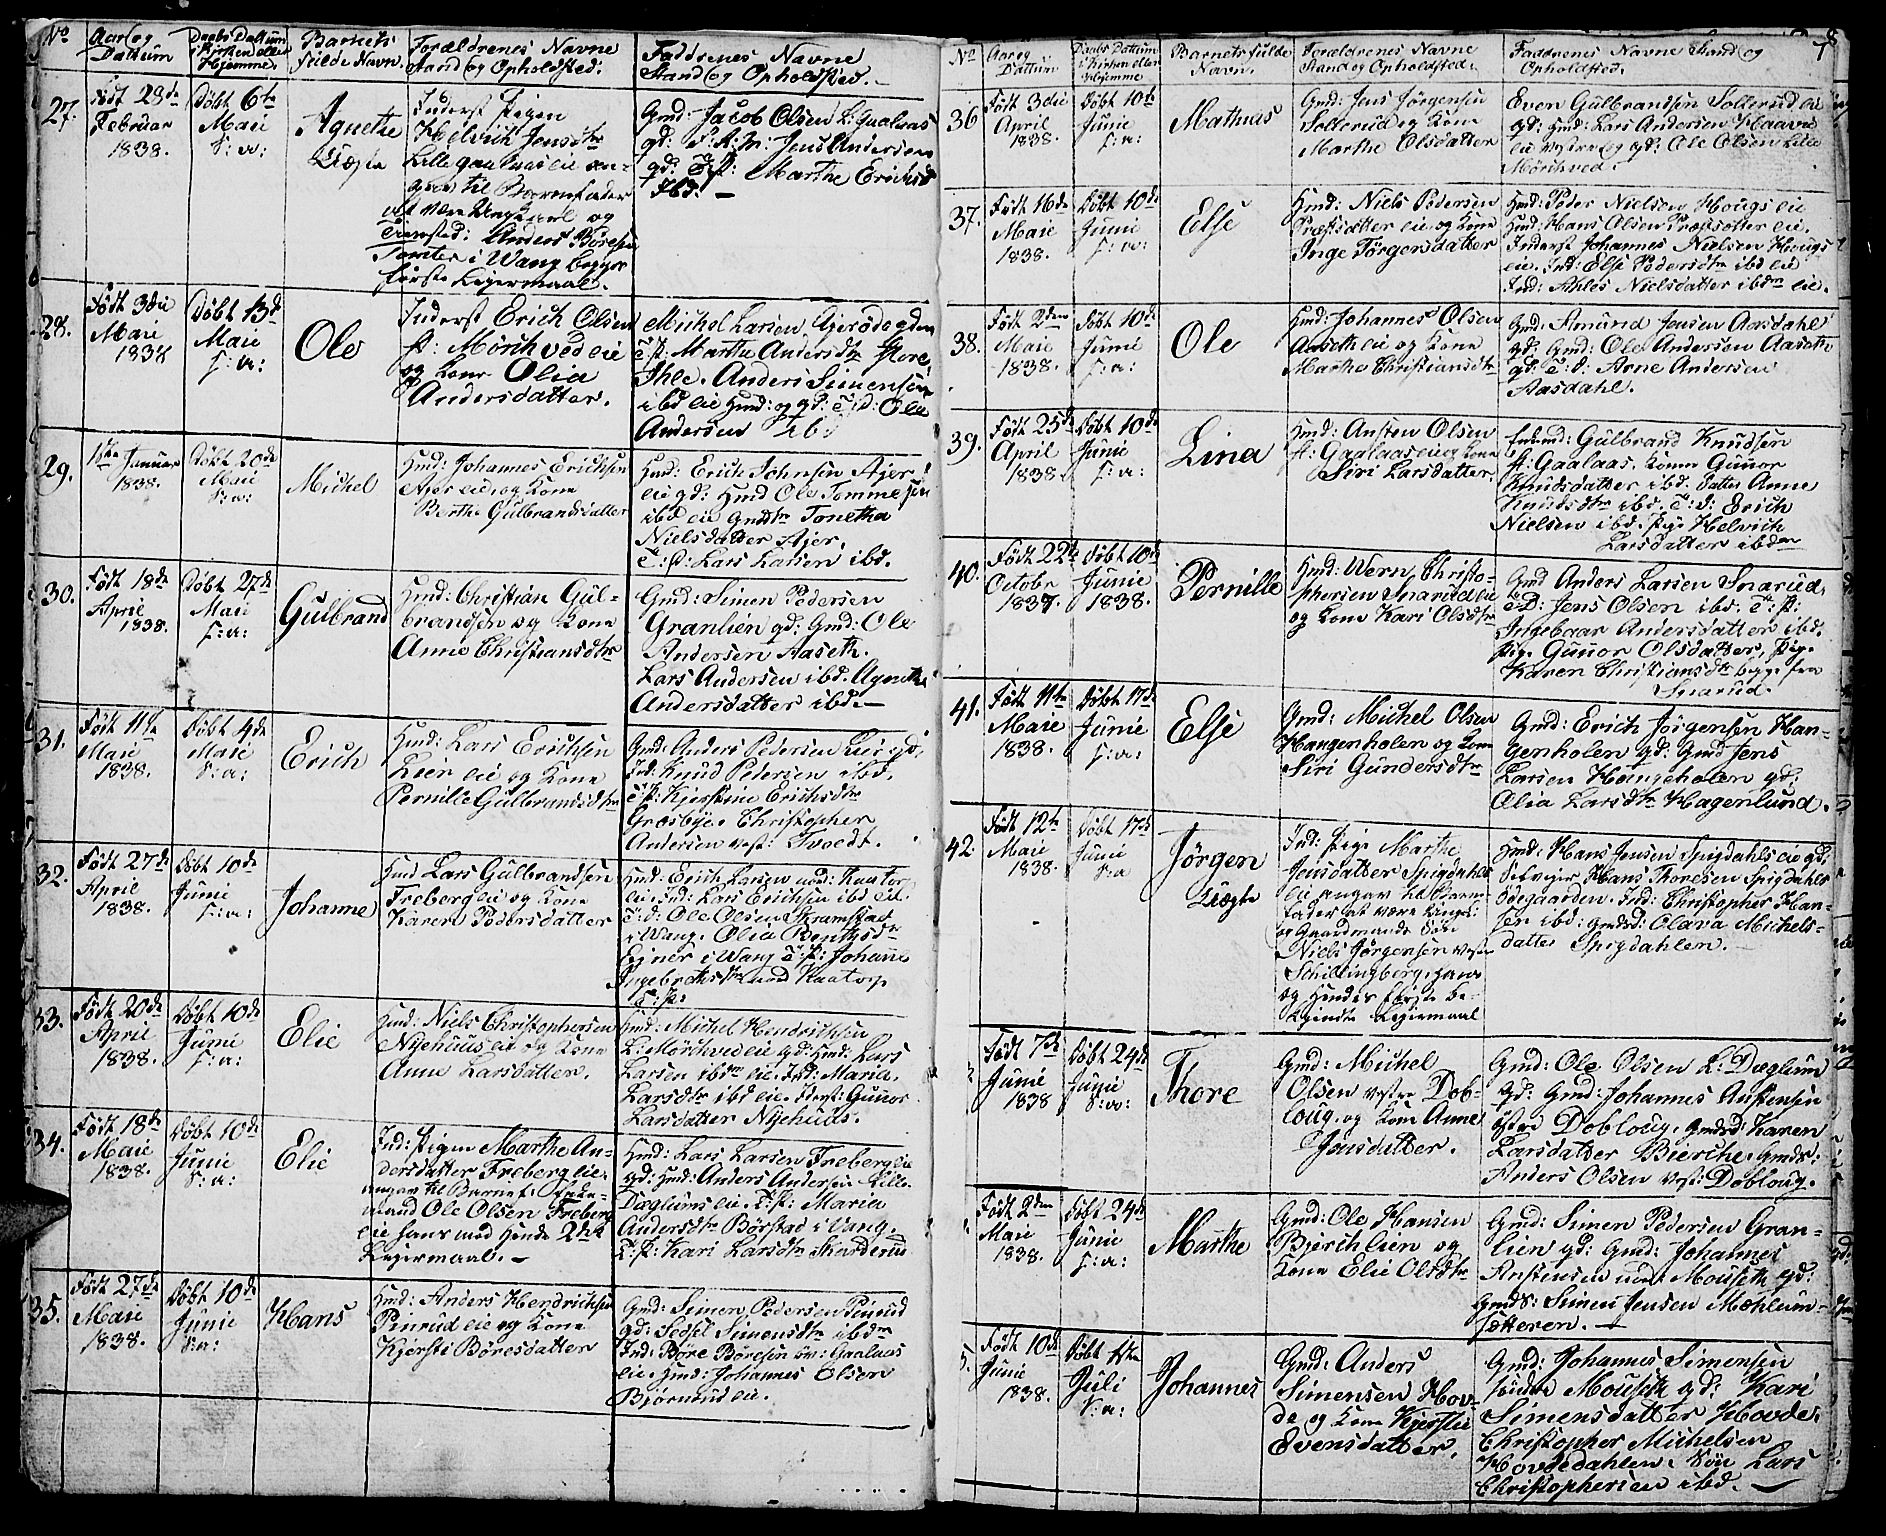 No
Aar og
Dattum
Daabs Dattum
i Kirken eller
Hjemme.
Barnets
fulde Navn.
Forældrenes Navne
Stand og Opholdsted.
Faddernes Navne
Stand og Opholdsted.
27.
Født 28de
Februar
1838.
Døbt 6te
Maii
s: a:
Agnethe
Uægte
Inderst Pigen
Helvich Jensdtr
Lille Gaalaas eie an-
gav til Barnefader
at være Ungkarl og
Anders Børesen
i Wang begges
første Leiermaal.
Gmd: Jacob Olsen L: Gaalaas
gd: S. K. M: Jens Andersen
gd: T: P: Marthe Erichsd
Ibd. —
28.
Født 3die
Maii
1838
Døbt 13de
Maii
s: a:
Ole
Inderst Erich Olsen
st: Mørchved eie
og Kone Olia
Andersdatter.
Michel Larsen Ajerødegden
T: P: Marthe Andersdtr Store
Ihle. Anders Simensen
ibd eie Hmd: og gd: T: D: Ole
Andersen ib.
29.
1ste Januar
1838.
Døbt 20de
Maii
s: a:
Michel
Hmd: Johannes Erichsen
Ajer eie, og Kone
Berthe Gulbrandsdatter
Hmd: Erich Johnsen Ajer
eie gd: Hmd Ole Tommesen
ibd eie Gmddtr Tonetha
Nielsdatter Ajer.
T: P: Lars Larsen ibd.
30.
Født 18de
April
1838.
Døbt 27de
Maii
s: a:
Gulbrand
Hmd: Christian Gul-
brandsen og Kone
Anne Christiansdtr
Gmd: Simen Pedersen
Granlien gd: Gmd: Ole
Andersen Aaseth.
Lars Andersen ibd. Agnethe
Andersdatter ibd. —
31.
Født 11te
Maii
1838.
Døbt 4de
Maii
s: a:
Erich
Hmd: Lars Erichsen
Leier eie og Kone
Pernille Gulbrandsdtr
Gmd: Anders Pedersen Lier gd:
Ind: Knud Pedersen ibd.
T: P: Kjerstine Erichsdtr
Græsbye. Christopher
Andersen vest: Tvedt.
32.
Født 27de
April
1838.
Døbt 10de
Junii
s: a:
Johanne
Hmd Lars Gulbrandsen
Freberg eie og Kone
Karen Pedersdatter
Hmd: Erich Larsen ned: Kaatorp
eie. Ind: Lars Erichsen ibd eie.
T: D: Ole Olsen Kramstad
i Wang. Olia Bentsdtr
Ejner i Wang T: P: Johanne
Ingebrethsdtr ned Kaatorp
T: P:
33.
Født 20de
April
1838.
Døbt 10de
Junii
s: a:
Elie
Hmd: Niels Christophersen
Nyehuus eie og Kone
Anne Larsdatter.
Hmd: Michel Hendrichsen
L: Mørchved eie gd: Hmd: Lars
Larsen ibdm eie. Ind: Maria
Larsdtr ibd eie. Iderst: Gunor
Larsdatter Nyehuus.
34.
Født 18de
Maii
1838.
Døbt 10de
Junii
s: a:
Elie
Ind: Pigen Marthe An-
dersdatter Freberg eie,
angav til Barnef:
mand Ole Olsen Freberg
eie hans med hende 2det
Leiermaal. —
Hmd: Lars Larsen Freberg eie
gd: Hmd: Anders Andersen Lille
Dæglums eie. T: P: Maria
Andersdtr Børstad i Wang.
T: P: Kari Larsdtr Skarderud
35.
Født 27de
Maii
1838.
Døbt 10de
Junii
s: a:
Hans
Hmd: Anders Hendrichsen
Pinrud eie og Kone
Kjersti Børesdatter
Gmd: Simen Pedersen Pinrud
gd: Sedsel Simensdtr ibdm
Ind: Børe Børesen øv: Gaalaas
eie. Hmd: Johannes Olsen
Bjørnrud eie.
8
7
No
Aar og
Dattum
Daabs Dattum
i Kirken eller
Hjemme
Barnets fulde
Navn.
Forældrenes Navne
Stand og Opholdsted.
Faddernes Navne Stand og
Opholdsted.
36
Født 3die
April
1838.
Døbt 10de
Junii
s: a:
Mathias
Gmd: Jens Jørgensen
Solterud og Kone
Marthe Olsdatter
Even Gulbrandsen Solterud eie
gd: Hmd: Lars Andersen Haave
eie vestre og gd: Ole Olsen Lille
Mørchved.
37.
Født 16de
Maii
1838.
Døbt 10de
Junii
s: a:
Else
Hmd: Niels Pedersen
Præstsætter eie og Kone
Inge Jørgensdatter
Hmd: Peder Nielsen Hougs eie
Hmd: Hans Olsen Præstsætter eie.
Inderst Johannes Nielsen Hougs
eie. Ind: Else Pedersdtr ibd eie
Ind: Ahles Nielsdatter ibdm eie.
38.
Født 2den
Maii
1838.
Døbt 10de
Junii
s: a:
Ole
Hmd: Johannes Olsen
Aaseth eie og Kone
Marthe Christiansdtr
Gmd: Amund Jensen Aasdahl
gd: Gmd: Ole Andersen Aaseth
gd: T: D: Arne Andersen
Aasdahl.
39.
Født 25de
April
1838.
Døbt 10de
Junii
s: a:
Lina
Hmd: Austen Olsen
st: Gaalaas eie og Kone
Siri Larsdatter.
Gulbrand Knudsen
st: Gaalaas. Konen Gunor
Knudsdatter ibd. datter Anne
Knudsdtr ibd. T: D: Erich
Nielsen ibd. Pige Helvich
Larsdatter ibdm
40.
Født 22de
Octobr
1837.
Døbt 10de
Junii
1838.
Pernille
Hmd: Wern Christo-
phersen Snarud eie
og Kone Kari Olsdtr
Gmd Anders Larsen Snarud.
T: D: Jens Olsen ibd. T: P:
Ingebaar Andersdatter ibd.
Pige Gunor Olsdatter, Pige
Karen Christiansdtr begge fra
Snarud.
41.
Født 11te
Maii
1838.
Døbt 17de
Junii
s: a:
Else
Gmd: Michel Olsen
Hangenholen og Kone
Siri Gundersdtr
Gmd: Erich Jørgensen Han-
genholen gd: Gmd Jens
Larsen Hangeholen gd:
Olia Larsdtr Hagenlund.
42
Født 12te
Maii
1838.
Døbt 17de
Junii
s: a
Jørgen
Uægte
Ind: Pige Marthe
Jensdatter Spigdahls
eie angav til Barne-
fader at være Ungk:
og Gaardmands Søn
Niels Jørgensen vestre
Schillingberg, hans
og Hendes første be-
gyndte Leiermaal
Hmd: Hans Jensen Spigdahls eie gd:
Selveier Hans Thoresen Spigdahls
ødegaarden. Ind: Christopher Han-
sen ibd: Gmdsd: Olava Michels-
datter Spigdahlen. —
Født 7de
Junii
1838
Døbt 24de
Junii
s: a:
Thore
Gmd: Michel
Olsen vestre Dob-
loug. og Kone Anne
Jensdatter.
Gmd: Ole Olsen L: Dæglum
gd: Gmd: Johannes Austensen
østre Dobloug. Gmdsd: Karen
Larsdatter Bierche. Gmds:
Anders Olsen vest: Dobloug.
Født 2den
Maii
1838.
Døbt 24de
Junii
s: a:
Marthe
Gmd: Ole Hansen
Bjerchlien og
Kone Elie Olsdtr
Gmd: Simen Pedersen Gran-
lien gd: Gmd: Johannes
Anstensen ned: Mouseth gd:
GmdS: Simen Jensen Mæhlum-
sætteren. —
5.
Født 10de
Junii
1838.
Døbt 1ste
Juli
s: a:
Johannes
Gmd: Anders
Simensen Hov-
de og Kone Kjerstie
Evensdatter.
Gmd: Johannes Simensen
søndre Mouseth gd: Kari
Simensdatter Hovde.
Christopher Michelsen
Hovdedahlen. Søn Lars
Christophersen ibd. —